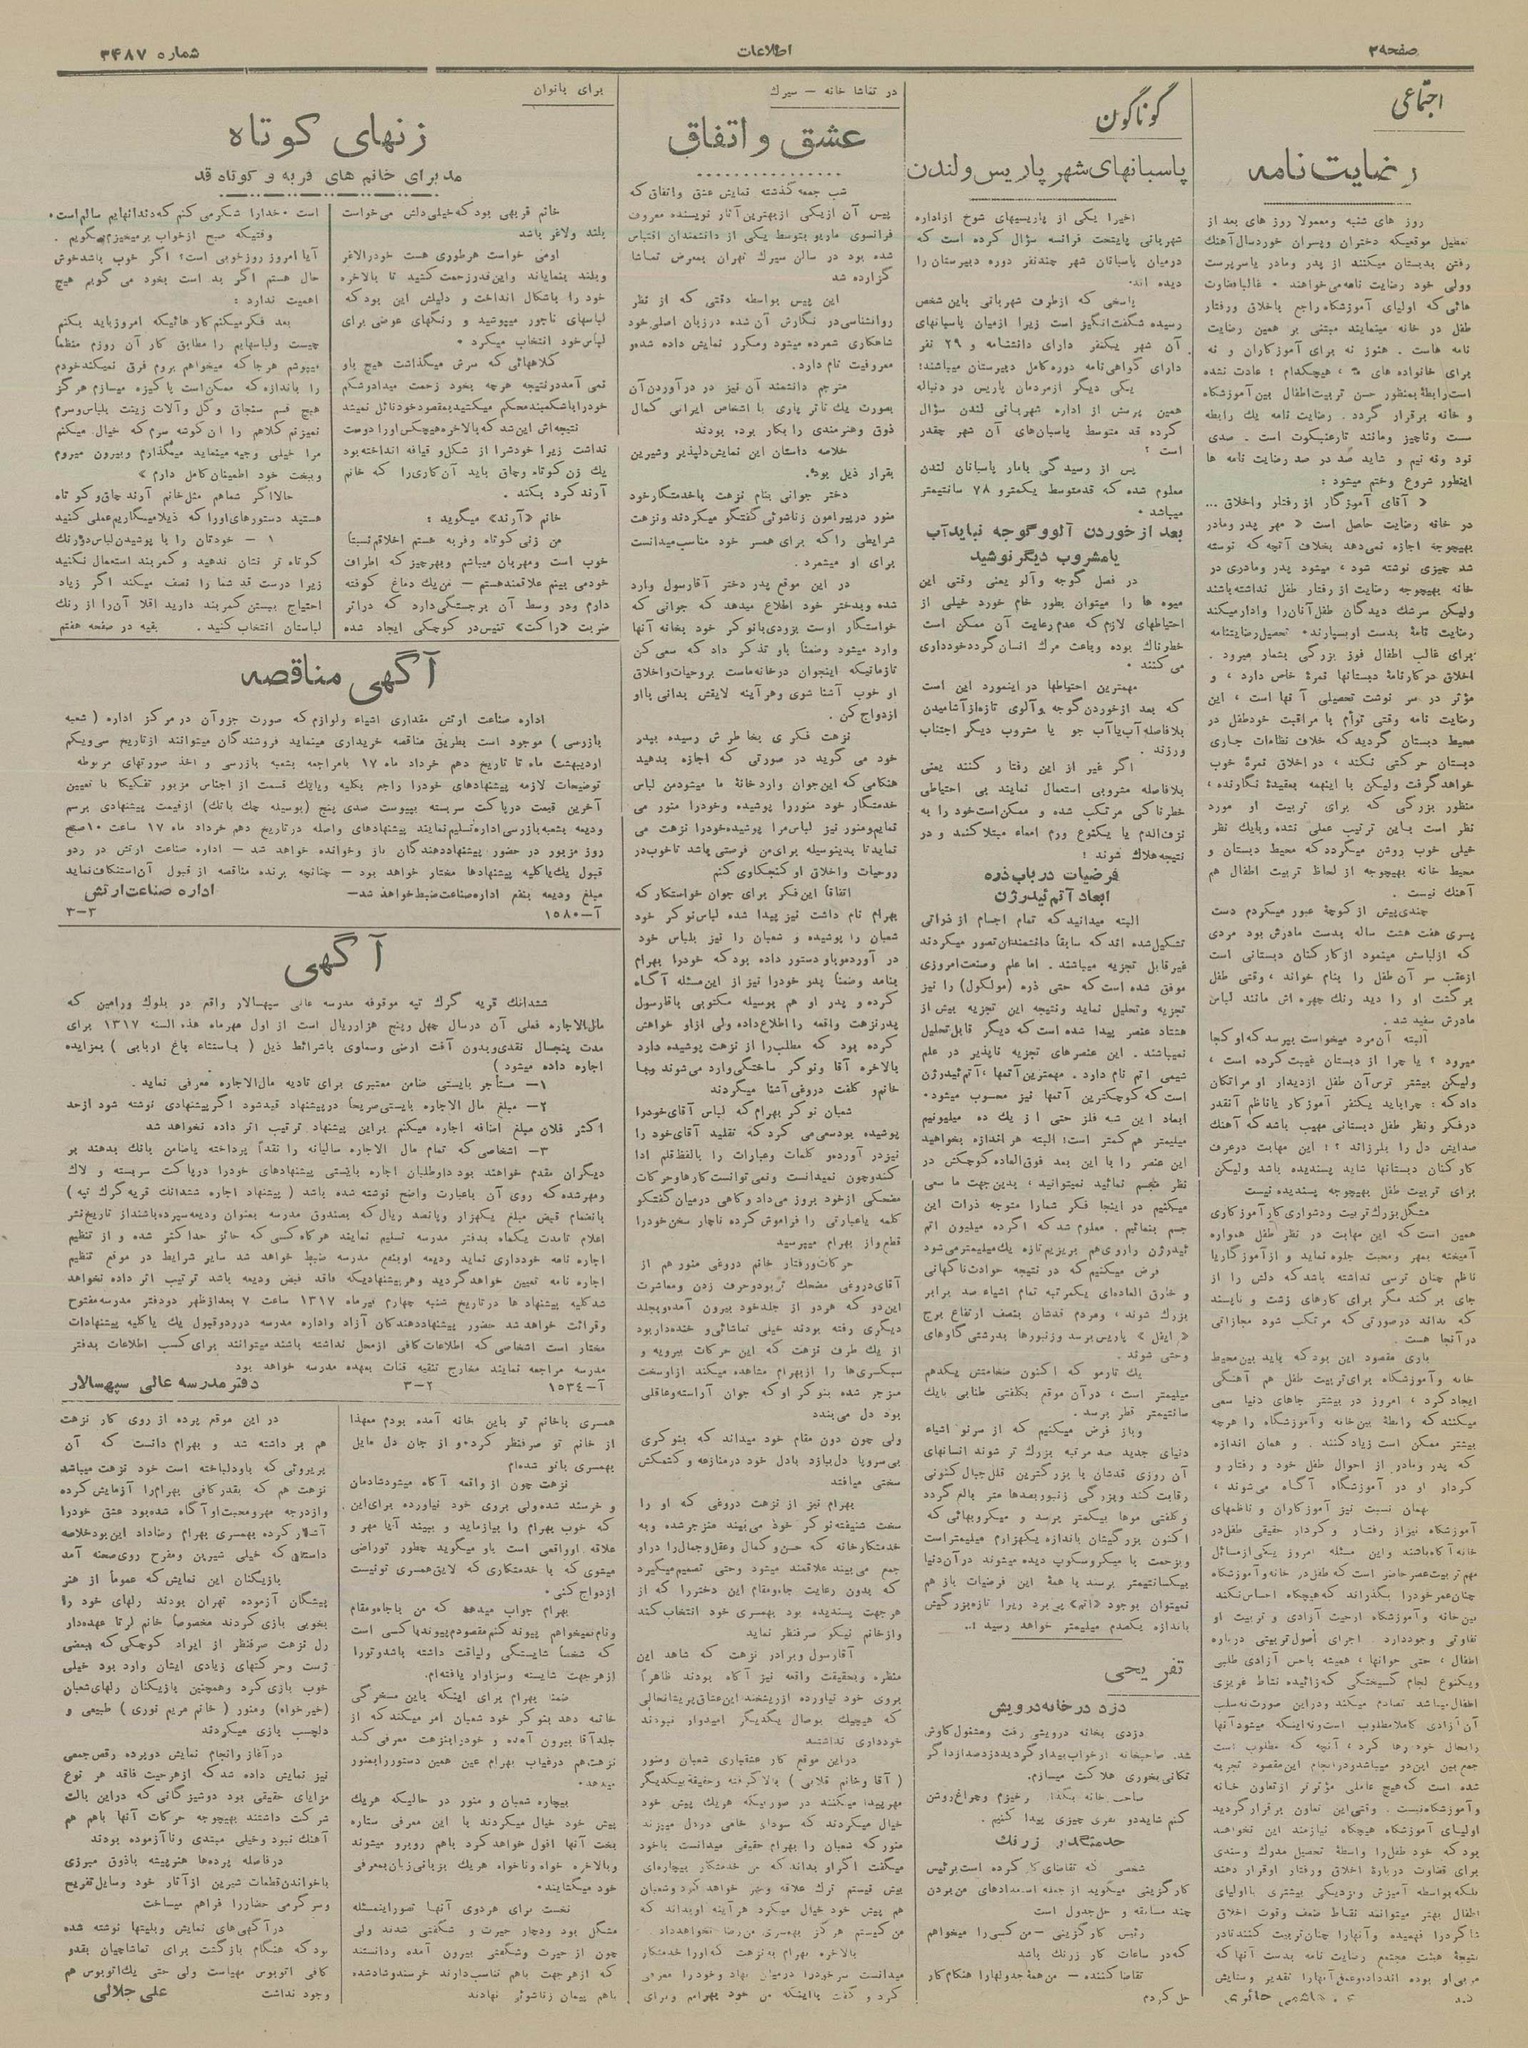 صفحه ۲
اطلاعات
شماره ۳۴۸۷
اجتماعی
رضایت نامه
روز های شنبه ومعمولا روز های بعد از
تعطیل موقعیکه دختران وپسران خوردسال آهنك
رفتن بدبستان میکنند از پدر ومادر یاسرپرست
وولی خود رضایت نامه می‌خواهند . غالبا
هائی که اولیای آموزشگاه راجع باخلاق ورفتار
طفل در خانه مینمایند مبتنی بر همین رضایت
نامه هاست . هنوز نه برای آموزگاران و نه
برای خانواده های ما ، هیچکدام ! عادت نشده
است رابطهٔ بمنظور حسن تربیت اطفال بین آموزشگاه
و خانه برقرار گردد . رضایت نامه یك رابطه
سست وناچیز ومانند تارعنکبوت است . صدی
نود ونه نیم و شاید صد در صد رضایت نامه ها
اینطور شروع وختم میشود :
« آقای آموزگار از رفتار واخلاق ...
در خانه رضایت حاصل است « مهر پدر ومادر
بهیچوجه اجازه نمی‌دهد بخلاف آنچه که نوشته
شد چیزی نوشته شود ، میشود پدر ومادری در
خانه بهیچوجه رضایت از رفتار طفل نداشته باشند
ولیکن سرشك دیدگان طفل آنان را وادار میکند
رضایت نامهٔ بدست او بسپارند . تحصیل رضایتنامه
برای غالب اطفال فوز بزرگی بشمار میرود .
اخلاق در کارنامهٔ دبستانها نمرهٔ خاص دارد ، و
مؤثر در سر نوشت تحصیلی آنها است ، این
رضایت نامه وقتی توأم با مراقبت خود طفل در
محیط دبستان گردید که خلاف نظامات جاری
دبستان حرکتی نکند ، در اخلاق نمرهٔ خوب
خواهد گرفت ولیکن با اینهمه بعقیدهٔ نگارنده ،
منظور بزرگی که برای تربیت او مورد
نظر است باین ترتیب عملی نشده وبایك نظر
خیلی خوب روشن میگردد که محیط دبستان و
محیط خانه بهیچوجه از لحاظ تربیت اطفال هم
آهنك نیست .
چندی پیش از کوچهٔ عبور میکردم دست
پسری هفت هشت ساله بدست مادرش بود مردی
که ازلباسش مینمود از کارکنان دبستانی است
ازعقب سر آن طفل را بنام خواند ، وقتی طفل
برگشت او را دید رنك چهره اش مانند لباس
مادرش سفید شد .
البته آن مرد میخواست بپرسد که او کجا
میرود ؟ یا چرا از دبستان غیبت کرده است ،
ولیکن بیشتر ترس آن طفل ازدیدار او مراتکان
داد که : چرا باید یکنفر آموز کار یا ناظم آنقدر
در فکر ونظر طفل دبستانی مهیب باشد که آهنك
صدایش دل را بلرزاند ؟ ! این مهابت در عرف
کارکنان دبستانها شاید پسندیده باشد ولیکن
برای تربیت طفل بهیچوجه پسندیده نیست
مشکل بزرك تربیت ودشواری کار آموزکاری
همین است که این مهابت در نظر طفل همواره
آمیخته بمهر ومحبت جلوه نماید و از آموزگار یا
ناظم چنان ترسی نداشته باشد که دلش را از
جای بر کند مگر برای کارهای زشت و ناپسند
که بداند در صورتی که مرتکب شود مجازاتی
در آنجا هست .
باری مقصود این بود که باید بین محیط
خانه وآموزشگاه برای تربیت طفل هم آهنگی
ایجاد کرد ، امروز در بیشتر جاهای دنیا سعی
میکنند که رابطهٔ بین خانه وآموزشگاه را هرچه
بیشتر ممکن است زیاد کنند . و همان اندازه
که پدر ومادر از احوال طفل خود و رفتار و
کردار او در آموزشگاه آگاه می‌شوند ،
بهمان نسبت نیز آموزکاران و ناظمهای
آموزشگاه نیز از رفتار وکردار حقیقی طفل در
خانه آگاه باشند واین مسئله امروز یکی ازمسائل
مهم تربیت عصر حاضر است که طفل در خانه وآموزشگاه
چنان عمر خود را بگذراند که هیچگاه احساس نکند
بین خانه وآموزشگاه ازحیث آزادی و تربیت او
تفاوتی وجود دارد . اجرای اصول تربیتی درباره
اطفال ، حتی جوانها ، همیشه باحس آزادی طلبی
ویکنوع لجام گسیختگی که زائیده نقاط غریزی
اطفال میباشد تصادم میکند ودر این صورت نه سلب
آن آزادی کاملا مطلوب است ونه اینکه میشود آنها
رابحال خود رها کرد ، آنچه که مطلوب است
جمع بین این دو میباشد ودر انجام این مقصود تجربه
شده است که هیچ عاملی مؤثرتر از تعاون خانه
وآموزشگاه نیست . وقتی این تعاون برقرار گردید
اولیای آموزشگاه هیچگاه نیازمند این نخواهند
بود که خود طفل را واسطهٔ تحصیل مدرك وسندی
برای قضاوت دربارهٔ اخلاق ورفتار او قرار دهند
بلکه بواسطه آمیزش ونزدیکی بیشتری با اولیای
اطفال بهتر میتوانند نقاط ضعف وقوت اخلاق
شاگرد را فهمیده وآنهارا چنان تربیت کنند تادر
نتیجهٔ هیئت مجتمع رضایت نامه بدست آنها که
مربی او بوده اند داده وعمل آنهارا تقدیر وستایش
کند
هاشمی حائری
گوناگون
پاسبانهای شهر پاریس ولندن
اخیرا یکی از پاریسیهای شوخ ازاداره
شهربانی پایتخت فرانسه سؤال کرده است که
درمیان پاسبانان شهر چند نفر دوره دبیرستان را
دیده اند .
پاسخی که ازطرف شهربانی باین شخص
رسیده شگفت انگیز است زیرا ازمیان پاسبانهای
آن شهر یکنفر دارای دانشنامه و ۲۹ نفر
دارای گواهی نامه دوره کامل دبیرستان میباشند!
یکی دیگر از مردمان پاریس در دنباله
همین پرس از اداره شهربانی لندن سؤال
کرده قد متوسط پاسبان‌های آن شهر چقدر
است ؟
پس از رسیدگی بامار پاسبانان لندن
معلوم شده که قد متوسط یکمترو ۷۸ سانتیمتر
میباشد .
بعد از خوردن آلو و گوجه نباید آب
یا مشروب دیگر نوشید
در فصل گوجه وآلو یعنی وقتی این
میوه ها را میتوان بطور خام خورد خیلی از
احتیاطهای لازم که عدم رعایت آن ممکن است
خطرناك بوده وباعث مرك انسان گردد خودداری
می کنند .
مهمترین احتیاطها در اینمورد این است
که بعد ازخوردن گوجه وآلوی تازه از آشامیدن
بلافاصله آب یا آب جو یا مشروب دیگر اجتناب
ورزند .
اگر غیر از این رفتار کنند یعنی
بلافاصله مشروبی استعمال نمایند بی احتیاطی
خطرناکی مرتکب شده و ممکن است خود را به
نزف الدم یا یکنوع ورم امعاء مبتلا کنند و در
نتیجه هلاك شوند !
فرضیات درباب ذره
ابعاد آتم ئیدرژن
البته میدانید که تمام اجسام از ذراتی
تشکیل شده اند که سابقا دانشمندان تصور میکردند
غیر قابل تجزیه میباشند . اما علم وصنعت امروزی
موفق شده است که حتی ذره (مولکول) را نیز
تجزیه وتحلیل نماید ونتیجه این تجزیه بیش از
هشتاد عنصر پیدا شده است که دیگر قابل تحلیل
نمیباشند . این عنصرهای تجزیه ناپذیر در علم
شیمی اتم نام دارد . مهمترین آتمها ، آتم ئیدرژن
است که کوچکترین آتمها نیز محسوب میشود.
ابعاد این شبه فلز حتی از یك ده میلیونیم
میلیمتر هم کمتر است ؛ البته هر اندازه بخواهید
این عنصر را با این بعد فوق العاده کوچکش در
نظر مجسم نمائید نمیتوانید ، بدین جهت ما سعی
میکنیم در اینجا فکر شمارا متوجه ذرات این
جسم بنمائیم . معلوم شد که اگرده میلیون اتم
ئیدرژن را روی هم بریزیم تازه یك میلیمتر می‌شود
فرض میکنیم که در نتیجه حوادث ناگهانی
و خارق العاده‌ای یکمرتبه تمام اشیاء صد برابر
بزرك شوند ، ومردم قدشان بنصف ارتفاع برج
« ایفل » پاریس برسد وزنبورها بدرشتی گاوهای
وحشی شوند .
یك تار مو که اکنون ضخامتش یکدهم
میلیمتر است ، در آن موقع بکلفتی طنابی بایك
سانتیمتر قطر برسد .
وباز فرض میکنیم که از سر نو اشیاء
دنیای جدید صد مرتبه بزرك تر شوند انسانهای
آن روزی قدشان با بزرگترین قلل جبال کنونی
رقابت کند وبزرگی زنبور بصدها متر بالغ گردد
وکلفتی موها بیکمتر برسد و میکروبهائی که
اکنون بزرگیشان باندازه یکهزارم میلیمتر است
وبزحمت با میکروسکوپ دیده میشوند در آن دنیا
بیکسانتیمتر برسند با همهٔ این فرضیات باز هم
نمیتوان بوجود «اتم» پی برد زیرا تازه بزرگیش
باندازه یکصدم میلیمتر خواهد رسید !..
تفریحی
دزد در خانه درویش
دزدی بخانه درویشی رفت ومشغول کاوش
شد . صاحبخانه ازخواب بیدار گردید دزد صدا زد اگر
تکانی بخوری هلاکت میسازم .
صاحب خانه بگذار برخیزم وچراغ روشن
کنم شاید دو نفری چیزی پیدا کنیم .
خدمتگذار زرنك
شخصی که تقاضای کار کرده است برئیس
کارگزینی میگوید از جمله استعدادهای من بردن
چند مسابقه و حل جدول است
رئیس کارگزینی - من کسی را میخواهم
که در ساعات کار زرنك باشد
تقاضا کننده - من همهٔ جدولها را هنگام کار
حل کردم
در تماشا خانه - سیرك
عشق و اتفاق
شب جمعه گذشته نمایش عشق واتفاق که
پیس آن ازیکی ازبهترین آثار نویسنده معروف
فرانسوی ماریو بتوسط یکی از دانشمندان اقتباس
شده بود در سالن سیرك تهران بمعرض تماشا
گزارده شد
این پیس بواسطه دقتی که از نظر
روانشناسی در نگارش آن شده در زبان اصلی خود
شاهکاری شمرده میشود ومکرر نمایش داده شده و
معروفیت تام دارد .
مترجم دانشمند آن نیز در در آوردن آن
بصورت یك تاتر پارسی با اشخاص ایرانی کمال
ذوق وهنرمندی را بکار برده بودند
خلاصه داستان این نمایش دلپذیر وشیرین
بقرار ذیل بود.
دختر جوانی بنام نزهت باخدمتگار خود
منور در پیرامون زناشوئی گفتگو میکردند ونزهت
شرایطی را که برای همسر خود مناسب میدانست
برای او میشمرد .
در این موقع پدر دختر آقا رسول وارد
شده وبدختر خود اطلاع میدهد که جوانی که
خواستگار اوست بزودی بانوکر خود بخانه آنها
وارد میشود وضمنا باو تذکر داد که سعی کن
تازمانیکه اینجوان در خانه ماست بروحیات واخلاق
او خوب آشنا شوی وهر آینه لایقش بدانی با او
ازدواج کن .
نزهت فکری بخاطرش رسیده بپدر
خود می گوید در صورتی که اجازه بدهید
هنگامی که این جوان وارد خانهٔ ما میشود من لباس
خدمتگار خود منور را پوشیده وخود را منور می
نمایم ومنور نیز لباس مرا پوشیده خود را نزهت می
نماید تا بدینوسیله برای من فرصتی باشد تاخوب در
روحیات واخلاق او کنجکاوی کنم
اتفاقا این فکر برای جوان خواستگار که
بهرام نام داشت نیز پیدا شده لباس نوکر خود
شعبان را پوشیده و شعبان را نیز بلباس خود
در آورده وباو دستور داده بود که خود را بهرام
بنامد وضمنا پدر خود را نیز از این مسئله آگاه
کرده و پدر او هم بوسیله مکتوبی باقا رسول
پدر نزهت واقعه را اطلاع داده ولی ازاو خواهش
کرده بود که مطلب را از نزهت پوشیده دارد
بالاخره آقا ونوکر ساختگی وارد می‌شوند وبا
خانم و کلفت دروغی آشنا میگردند
شعبان نوکر بهرام که لباس آقای خود را
پوشیده بود سعی می کرد که تقلید آقای خود را
نیز در آورده و کلمات وعبارات را بالفظ قلم ادا
کند و چون نمیدانست ونمی توانست کارها وحرکات
مضحکی ازخود بروز می‌داد و گاهی درمیان گفتگو
کلمه یا عبارتی را فراموش کرده ناچار سخن خود را
قطع و از بهرام میپرسید
حرکات ورفتار خانم دروغی منور هم از
آقای دروغی مضحك تر بود و حرف زدن ومعاشرت
این دو که هر دو از جلد خود بیرون آمده و بجلد
دیگری رفته بودند خیلی تماشائی و خنده دار بود
از یك طرف نزهت که این حرکات بیرویه و
سبکسری ها را ازبهرام مشاهده میکند ازاو سخت
منزجر شده بنوکر او که جوان آراسته وعاقلی
بود دل می‌بندد
ولی چون دون مقام خود میداند که بنوکری
بی سر و پا دل ببازد بادل خود در منازعه و کشمکش
سختی میافتد
بهرام نیز از نزهت دروغی که او را
سخت شیفته نوکر خود می‌بیند منزجر شده وبه
خدمتکار خانه که حسن و کمال وعقل وجمال را در او
جمع می بیند علاقمند میشود وحتی تصمیم میگیرد
که بدون رعایت جاه ومقام این دختر را که از
هر جهت پسندیده بود بهمسری خود انتخاب کند
واز خانم نیکو صرفنظر نماید
آقا رسول وبرادر نزهت که شاهد این
منظره وبحقیقت واقعه نیز آگاه بودند ظاهراً
بروی خود نیاورده ازریشخند این عشاق پریشانحالی
که هیچیك بوصال یکدیگر امیدوار نبودند
خودداری نداشتند
در این موقع کار عشقبازی شعبان ومنور
( آقا وخانم قلابی ) بالا گرفته وحقیقة بیکدیگر
مهر پیدا میکنند در صورتیکه هر یك پیش خود
خیال میکردند که سودای خامی در دل میپزند
منور که شعبان را بهرام حقیقی میدانست باخود
میگفت اگر او بداند که من خدمتکار بیچاره‌ای
بیش نیستم ترك علاقه ومهر خواهد کرد وشعبان
هم پیش خود خیال میکرد هر آینه او بداند که
من کیستم هرگز بهمسری من رضا نخواهد داد
بالاخره بهرام به نزهت که اورا خدمتکار
میدانست سر خود را درمیان نهاد وخود را معرفی
کرد و گفت با اینکه من خود بهرامم وبرای
همسری باخانم تو باین خانه آمده بودم معهذا
از خانم تو صرفنظر کرده و از جان دل مایل
بهمسری بانو شده‌ام
نزهت چون از واقعه آگاه میشود شادمان
و خرسند شده ولی بروی خود نیاورده برای این
که خوب بهرام را بیازماید و ببیند آیا مهر و
علاقه اوواقعی است باو میگوید چطور توراضی
میشوی که با خدمتکاری که لایق همسری تو نیست
ازدواج کنی .
بهرام جواب میدهد که من با جاه ومقام
ونام نمیخواهم پیوند کنم مقصودم پیوند با کسی است
که شخصاً شایستگی ولیاقت داشته باشد و تورا
ازهر جهت شایسته وسزاوار یافته‌ام .
ضمنا بهرام برای اینکه باین مسخرگی
خاتمه دهد بنوکر خود شعبان امر میکند که از
جلد آقا بیرون آمده و خود را بنزهت معرفی کند
نزهت هم درغیاب بهرام عین همین دستور را بمنور
میدهد .
بیچاره شعبان و منور در حالیکه هریك
پیش خود خیال میکردند با این معرفی ستاره
بخت آنها افول خواهد کرد باهم روبرو میشوند
وبالاخره خواه وناخواه هر یك بزبانی زبان بمعرفی
خود میگشایند .
نخست برای هر دوی آنها تصور اینمسئله
مشکل بود ودچار حیرت و شگفتی شدند ولی
چون از حیرت وشگفتی بیرون آمده ودانستند
که ازهر جهت باهم تناسب دارند خرسند وشاد شده
باهم پیمان زناشوئی نهادند
در این موقع پرده از روی کار نزهت
هم بر داشته شد و بهرام دانست که آن
پریروئی که باو دلباخته است خود نزهت میباشد
نزهت هم که بقدر کافی بهرام را آزمایش کرده
واز درجه مهر ومحبت او آگاه شده بود عشق خود را
آشکار کرده بهمسری بهرام رضا داد این بود خلاصه
داستانی که خیلی شیرین ومفرح روی صحنه آمد
بازیکنان این نمایش که عموماً از هنر
پیشگان آزموده تهران بودند رلهای خود را
بخوبی بازی کردند مخصوصاً خانم لرتا عهده دار
رل نزهت صرفنظر از ایراد کوچکی که ببعضی
ژست وحرکتهای زیادی ایشان وارد بود خیلی
خوب بازی کرد وهمچنین بازیکنان رلهای شعبان
(خیرخواه) ومنور ( خانم مریم نوری ) طبیعی و
دلچسب بازی میکردند
در آغاز وانجام نمایش دوپرده رقص جمعی
نیز نمایش داده شد که ازهر حیث فاقد هر نوع
مزایای حقیقی بود دوشیزگانی که در این بالت
شرکت داشتند بهیچوجه حرکات آنها باهم هم
آهنك نبود وخیلی مبتدی ونا آزموده بودند
درفاصله پرده‌ها هنرپیشه باذوق مبرزی
باخواندن قطعات شیرین ازآثار خود وسایل تفریح
وسر گرمی حضار را فراهم میساخت
در آگهی‌های نمایش وبلیتها نوشته شده
بود که هنگام بازگشت برای تماشاچیان بقدر
کافی اتوبوس مهیاست ولی حتی یك اتوبوس هم
وجود نداشت
علی جلالی
برای بانوان
زنهای کوتاه
مد برای خانم های فربه و کوتاه قد
خانم فربهی بود که خیلی دلش می‌خواست
بلند ولاغر باشد
اومی خواست هر طوری هست خود را لاغر
وبلند بنمایاند واین قدر زحمت کشید تا بالاخره
خود را باشکال انداخت و دلیلش این بود که
لباسهای ناجور میپوشید و رنگهای عوضی برای
لباس خود انتخاب میکرد .
کلاههائی که سرش میگذاشت هیچ باو
نمی آمد در نتیجه هرچه بخود زحمت میداد و شکم
خود را باشکمبند محکم میکشید بمقصود خود نائل نمیشد
نتیجه‌اش این شد که بالاخره هیچکس اورا دوست
نداشت زیرا خودش را از شکل و قیافه انداخته بود
یك زن کوتاه وچاق باید آن کاری را که خانم
آرند کرد بکند .
خانم «آرند» میگوید :
من زنی کوتاه وفربه هستم اخلاقم نسبتاً
خوب است ومهربان میباشم وبهر چیز که اطراف
خود می بینم علاقمند هستم - من یك دماغ کوفته
دارم ودر وسط آن برجستگی دارد که در اثر
ضربت «راکت» تنیس در کوچکی ایجاد شده
است . خدارا شکر می کنم که دندانهایم سالم است .
وقتیکه صبح ازخواب برمیخیزم میگویم .
آیا امروز روز خوبی است؟ اگر خوب باشد خوش
حال هستم اگر بد است بخود می گویم هیچ
اهمیت ندارد :
بعد فکر میکنم کارهائیکه امروز باید بکنم
چیست ولباسهایم را مطابق کار آن روزم منظماً
میپوشم هر جا که میخواهم بروم فرق نمیکند خودم
را باندازه که ممکن است پاکیزه میسازم هرگز
هیچ قسم سنجاق وگل وآلات زینت بلباس وسرم
نمیزنم کلاهم را آن گوشه سرم که خیال میکنم
مرا خیلی وجیه مینماید میگذارم وبیرون میروم
وببخت خود اطمینان کامل دارم »
حالا اگر شماهم مثل خانم آرند چاق و کوتاه
هستید دستورهای اورا که ذیلا مینگاریم عملی کنید
۱ - خودتان را با پوشیدن لباس دو رنك
کوتاه تر نشان ندهید و کمربند استعمال نکنید
زیرا درست قد شما را نصف میکند اگر زیاد
احتیاج ببستن کمربند دارید اقلا آن را از رنك
لباستان انتخاب کنید . بقیه در صفحه هفتم
آگهی مناقصه
اداره صناعت ارتش مقداری اشیاء ولوازم که صورت جزو آن در مرکز اداره ( شعبه
بازرسی ) موجود است بطریق مناقصه خریداری مینماید فروشندگان میتوانند ازتاریخ سی ویکم
اردیبهشت ماه تا تاریخ دهم خرداد ماه ۱۷ بامراجعه بشعبه بازرسی و اخذ صورتهای مربوطه
توضیحات لازمه پیشنهادهای خود را راجع بکلیه ویایك قسمت از اجناس مزبور تفکیکا با تعیین
آخرین قیمت درپاکت سربسته بپیوست صدی پنج (بوسیله چك بانك) ازقیمت پیشنهادی برسم
ودیعه بشعبه بازرسی اداره تسلیم نمایند پیشنهادهای واصله در تاریخ دهم خرداد ماه ۱۷ ساعت ۱۰ صبح
روز مزبور در حضور پیشنهاددهندگان باز وخوانده خواهد شد - اداره صناعت ارتش در ردو
قبول یك یا کلیه پیشنهادها مختار خواهد بود - چنانچه برنده مناقصه از قبول آن استنکاف نماید
مبلغ ودیعه بنفع اداره صناعت ضبط خواهد شد -
اداره صناعت ارتش
آ-۱۵۸۰
۳-۳
آگهی
ششدانك قریه گرك تپه موقوفه مدرسه عالی سپهسالار واقع در بلوك ورامین که
مال الاجاره فعلی آن درسال چهل وپنج هزار ریال است از اول مهرماه هذه السنه ۱۳۱۷ برای
مدت پنجسال نقدی وبدون آفت ارضی وسماوی باشرائط ذیل ( باستثناء باغ اربابی ) بمزایده
اجاره داده میشود )
۱- مستأجر بایستی ضامن معتبری برای تادیه مال الاجاره معرفی نماید .
۲- مبلغ مال الاجاره بایستی صریحا در پیشنهاد قید شود اگر پیشنهادی نوشته شود ازحد
اکثر فلان مبلغ اضافه اجاره میکنم براین پیشنهاد ترتیب اثر داده نخواهد شد
۳- اشخاصی که تمام مال الاجاره سالیانه را نقداً پرداخته یا ضامن بانك بدهند بر
دیگران مقدم خواهند بود داوطلبان اجاره بایستی پیشنهادهای خود را درپاکت سربسته و لاك
ومهر شده که روی آن باعبارت واضح نوشته شده باشد ( پیشنهاد اجاره ششدانك قریه گرك تپه )
بانضمام قبض مبلغ یکهزار وپانصد ریال که بصندوق مدرسه بعنوان ودیعه سپرده باشند از تاریخ نشر
اعلام تامدت یکماه بدفتر مدرسه تسلیم نمایند هر گاه کسی که حائز حد اکثر شده و از تنظیم
اجاره نامه خودداری نماید ودیعه او بنفع مدرسه ضبط خواهد شد سایر شرایط در موقع تنظیم
اجاره نامه تعیین خواهد گردید وهر پیشنهادیکه فاقد قبض ودیعه باشد ترتیب اثر داده نخواهد
شد کلیه پیشنهاد ها در تاریخ شنبه چهارم تیر ماه ۱۳۱۷ ساعت ۷ بعد از ظهر در دفتر مدرسه مفتوح
وقرائت خواهد شد حضور پیشنهاددهندگان آزاد واداره مدرسه در رد و قبول یك یا کلیه پیشنهادات
مختار است اشخاصی که اطلاعات کافی از محل نداشته باشند میتوانند برای کسب اطلاعات بدفتر
مدرسه مراجعه نمایند مخارج تنقیه قنات بعهده مدرسه خواهد بود
آ-۱۵۳٤
۳-۲
دفتر مدرسه عالی سپهسالار